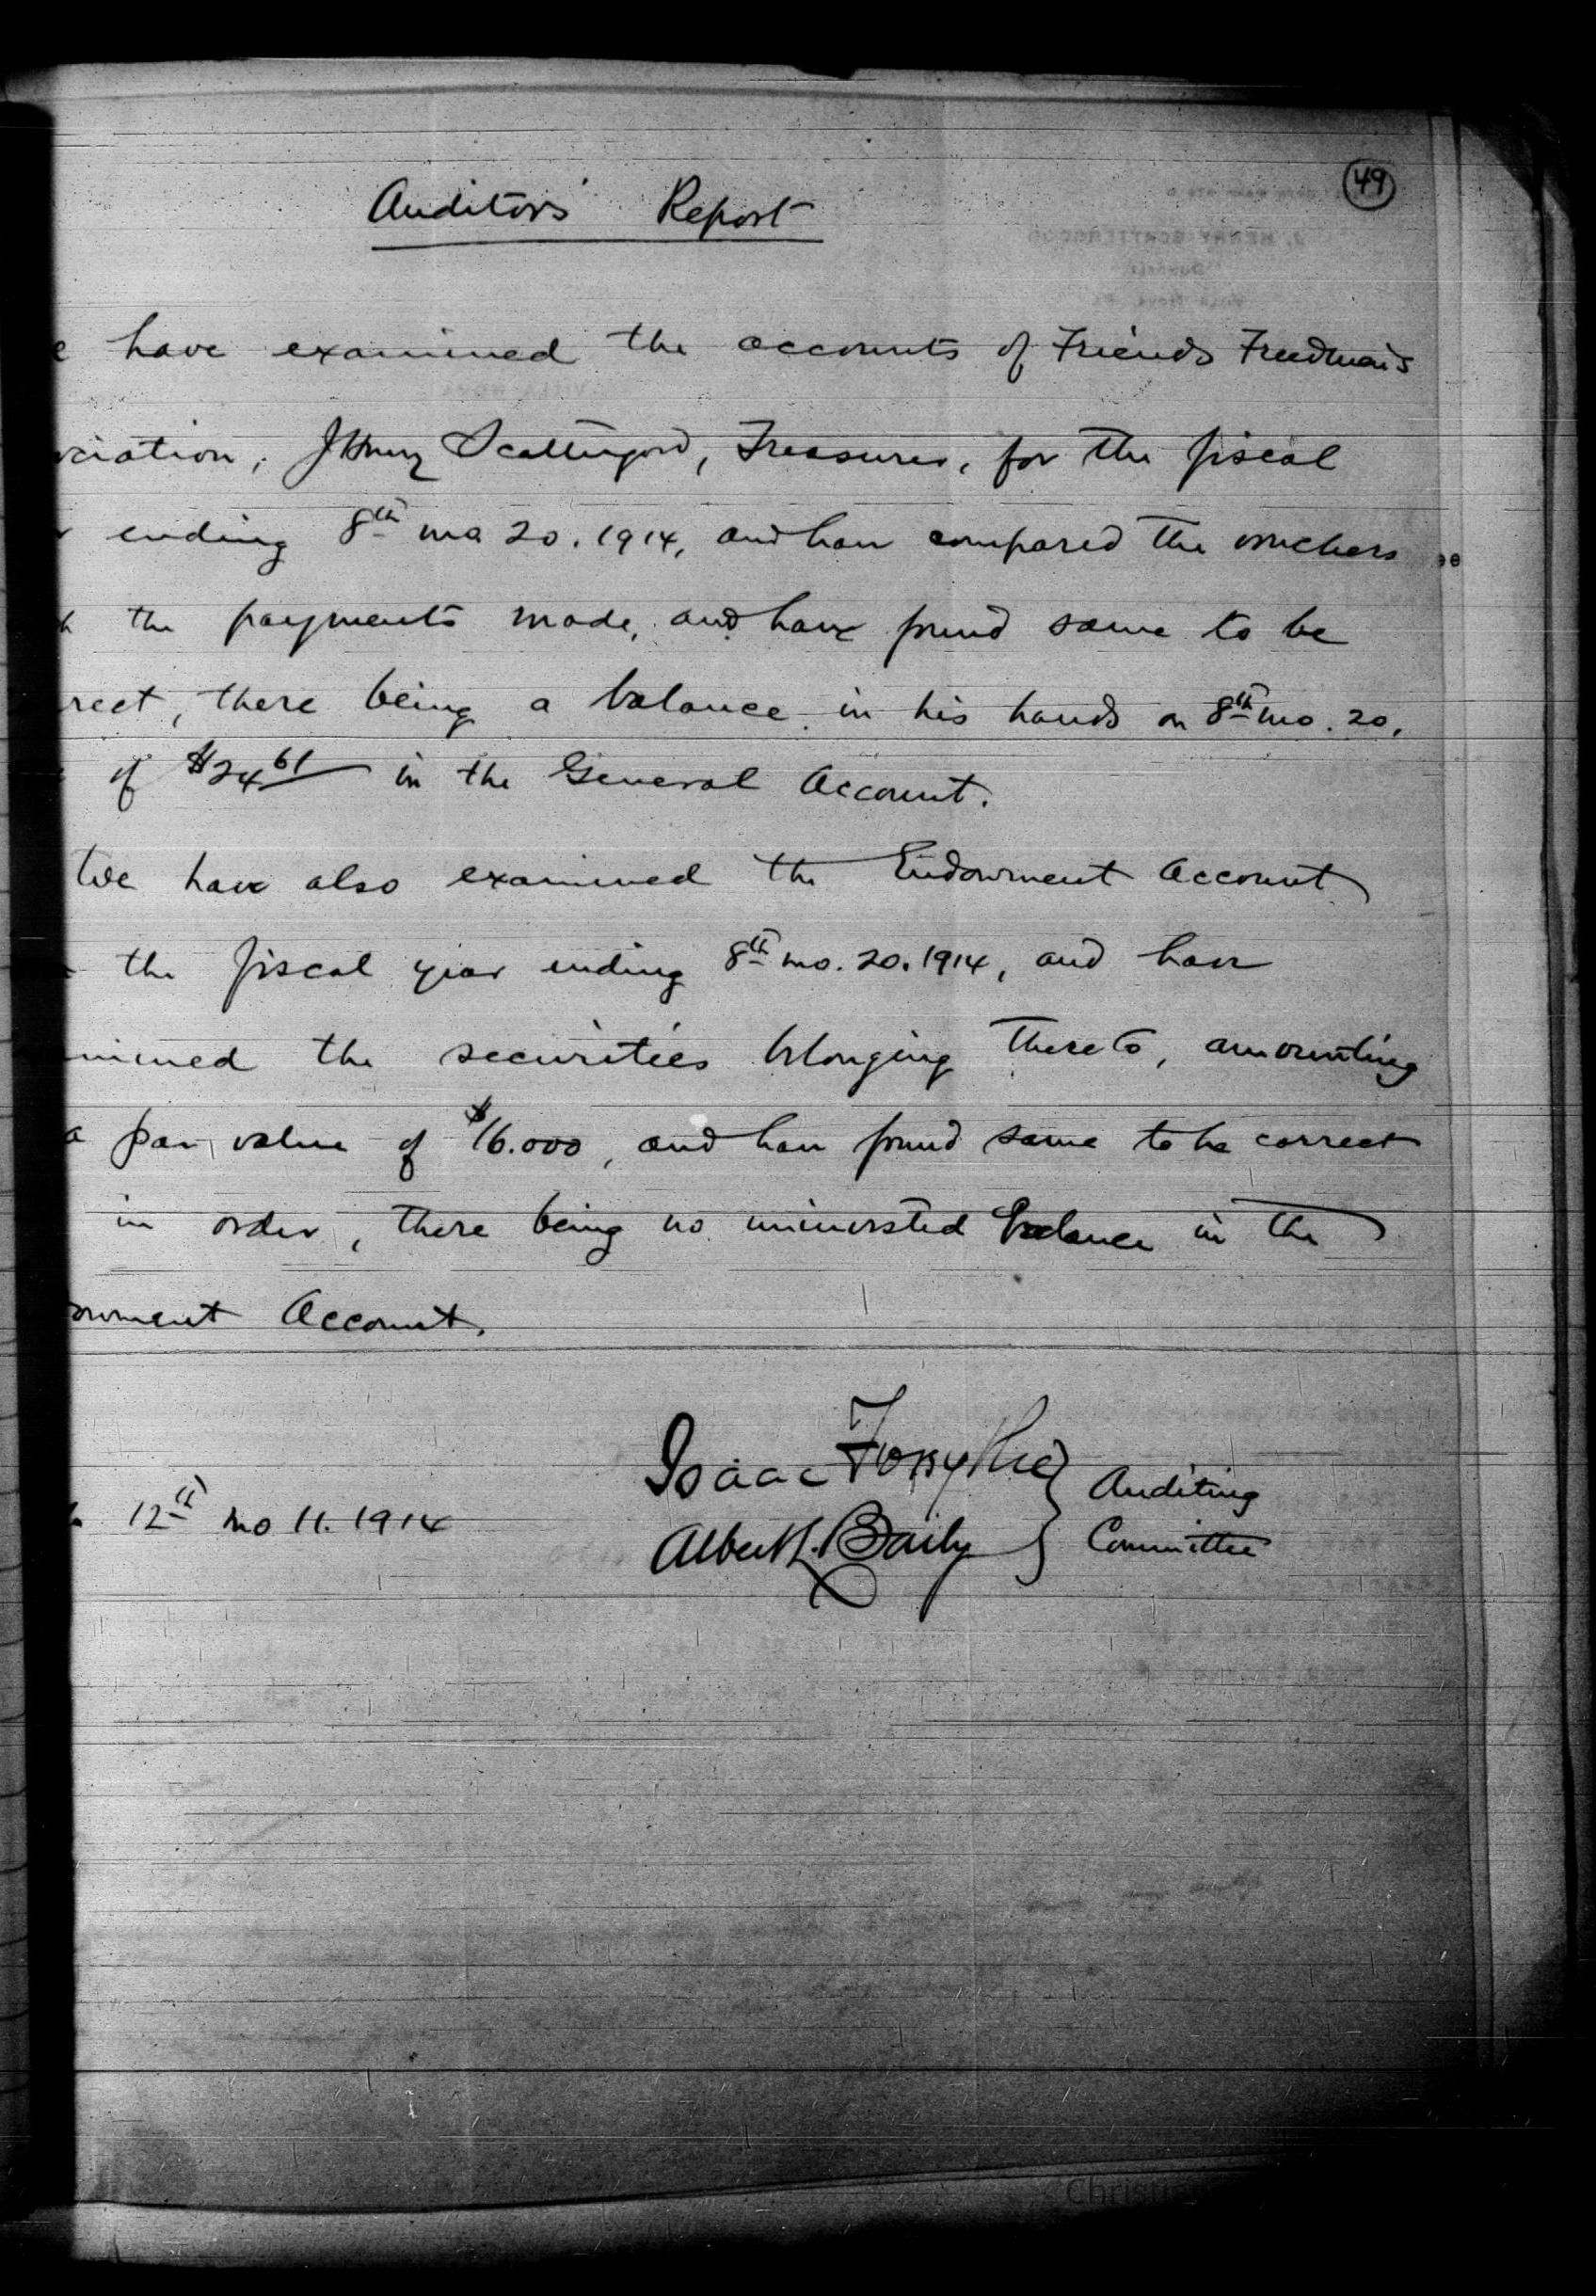 49
Auditors' Report
e have examined the accounts of Friends Freedmen's
ciation, J Henry Scattergood, Treasurer, for the fiscal
r ending 8th mo 20. 1914, and have compared the vouchers
h the payments made, and have found same to be
rrect, there being a balance in his hands on 8th mo. 20,
of $24 61 in the General Account.
We have also examined the Endowment Account
the fiscal year ending 8th mo. 20. 1914, and have
mined the securities belonging thereto, amounting
a par value of $16.000, and have found same to be correct
in order, there being no uninvested balance in the
owment Account.
Isaac Forsythe } Auditing
12th mo 11. 1914
Albert L. Baily } Committee
Christi